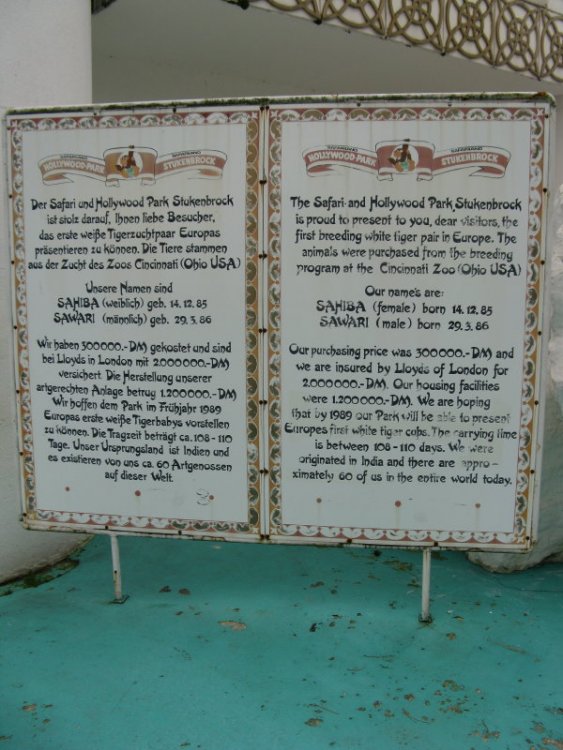 SAFARILAND SAFARILAND
HOLLYWOOD-PARK STUKENBROCK
Der Safari und Hollywood Park Stukenbrock
ist stolz darauf, Ihnen liebe Besucher,
das erste weiße Tigerzuchtpaar Europas
präsentieren zu können. Die Tiere stammen
aus der Zucht des Zoos Cincinnati (Ohio USA)
Unsere Namen sind
SAHIBA (weiblich) geb. 14.12.85
SAWARI (männlich) geb. 29.3.86
Wir haben 300000.-DM gekostet und sind
bei Lloyds in London mit 2.000000.-DM
versichert. Die Herstellung unserer
artgerechten Anlage betrug 1.200000.-DM
Wir hoffen dem Park im Frühjahr 1989
Europas erste weiße Tigerbabys vorstellen
zu können. Die Tragzeit beträgt ca. 108-110
Tage. Unser Ursprungsland ist Indien und
es existieren von uns ca. 60 Artgenossen
auf dieser Welt.
SAFARILAND SAFARILAND
HOLLYWOOD-PARK STUKENBROCK
The Safari- and Hollywood Park, Stukenbrock
is proud to present to you, dear visitors, the
first breeding white tiger pair in Europe. The
animals were purchased from the breeding
program at the Cincinnati Zoo (Ohio USA)
Our name's are:
SAHIBA (female) born 14.12.85
SAWARI (male) born 29.3.86
Our purchasing price was 300000.-DM and
we are insured by Lloyds of London for
2.000000.-DM. Our housing facilities
were 1.200000.-DM. We are hoping
that by 1989 our Park will be able to present
Europes first white tiger cubs. The carrying time
is between 108-110 days. We were
originated in India and there are appro-
ximately 60 of us in the entire world today.